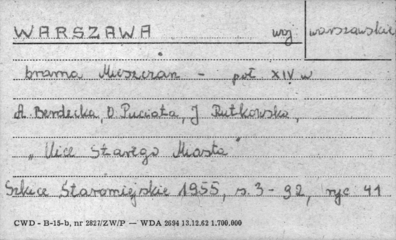 WARSZAWA woj. warszawskie
brama Mieszczan - poł XIV w
A. Berdecka, D. Puciata, J. Rutkowska,
"Ulice Starego Miasta"
Szkice Staromiejskie 1955, s. 3-92, ryc 41
CWD - B-15-b, nr 2827/ZW/P — WDA 2694 13.12.62 1.700.000